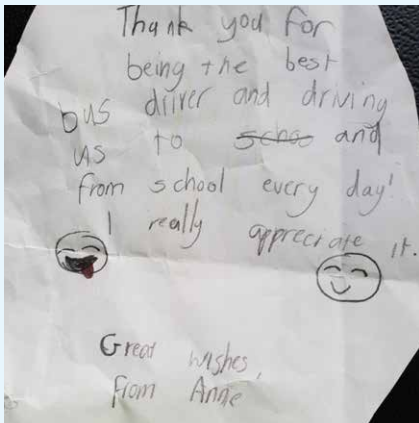 Thank you for
being the best
bus driver and driving
us to schoo and
from school every day!
I really appreciate it.
Great wishes,
from Anne